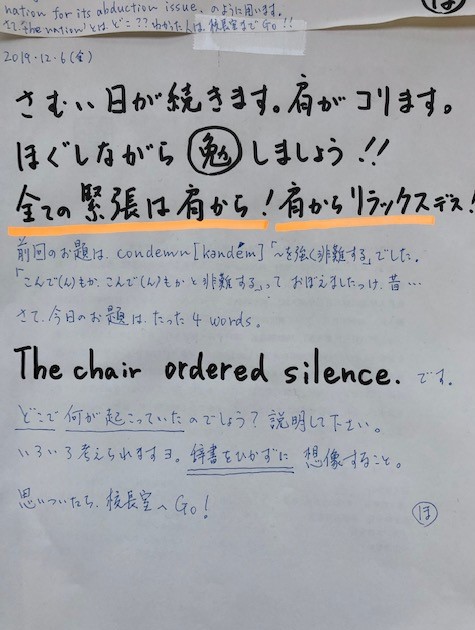 nation for its abduction issue. のように用います。
さて、the nation とは、どこ??わかった人は、校長室まで Go!!
ほ
2019.12.6(金)
さむい日が続きます。肩がコリます。
ほぐしながら 勉 しましょう!!
全ての緊張は肩から!肩からリラックスデス!
前回のお題は、condemn [kəndém]「~を強く非難する」でした。
「こんで(ん)もか、こんで(ん)もか と非難する」って おぼえましたっけ、昔…
さて、今日のお題は、たった 4 words。
The chair ordered silence. です。
どこで 何が起こっていたのでしょう?説明して下さい。
いろいろ考えられますヨ。辞書をひかずに 想像すること。
思いついたら、校長室へ Go!
ほ